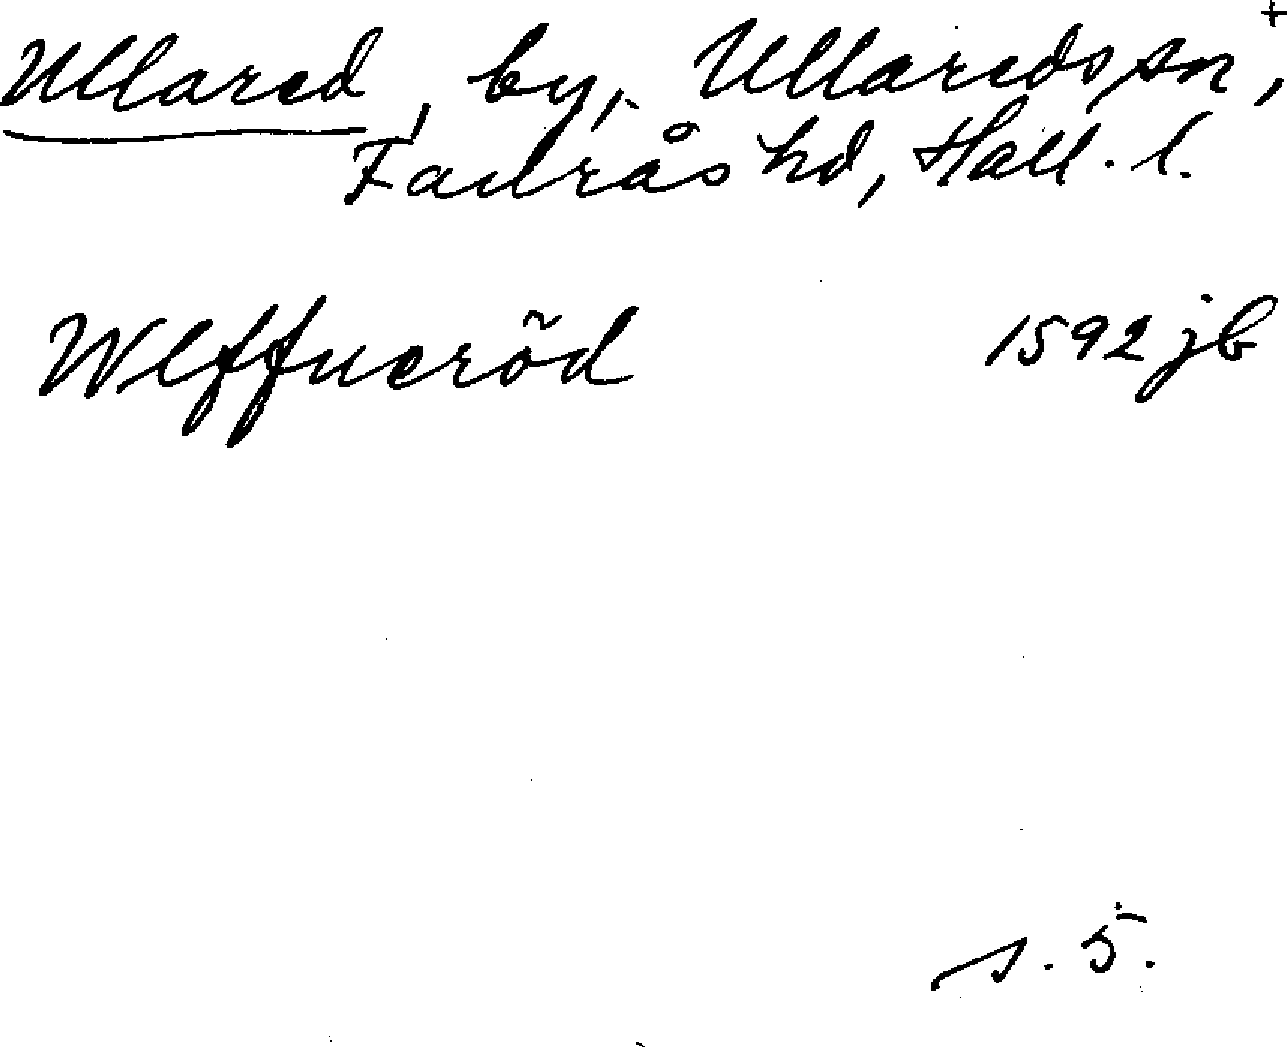 Ullared, by, Ullareds sn, +
Faurås hd, Hall. l.
Wlffueröd 1592 jb
s. 5.